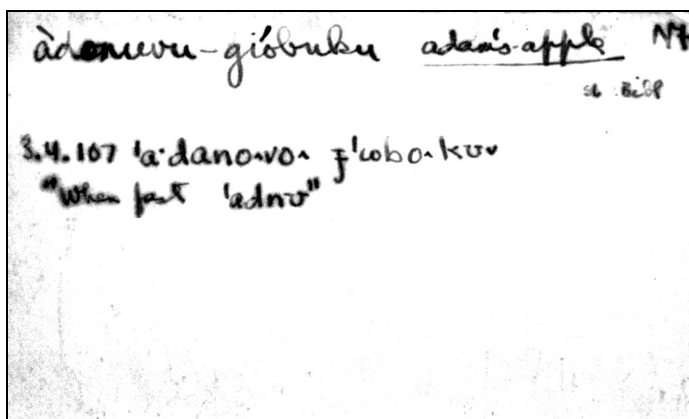 àdonuvu-gióbuku adam's-apple N7
st Bibl
3.4.107 'a·dano˔vo˔ ɟ'ωbo˔kʊv
"When fast 'adnʊ"